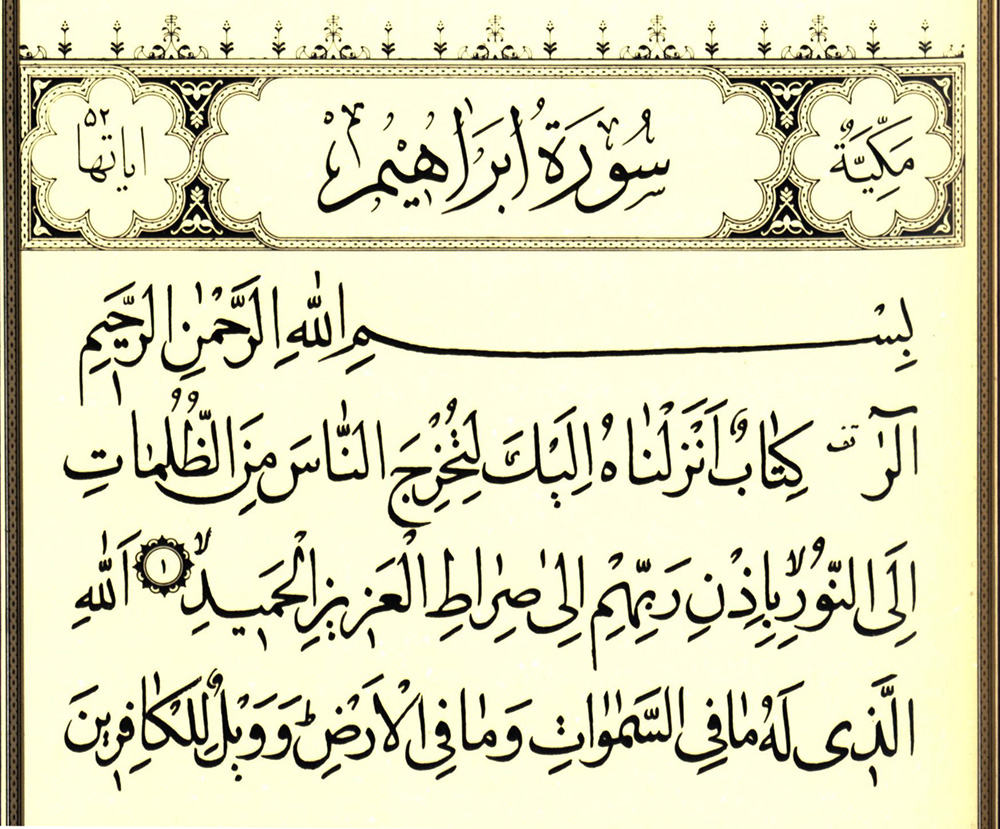 مَكِّيَّةٌ
سُورَةُ اِبْرَاهِيمَ
اياتها ٥٢
بِسْمِ اللّٰهِ الرَّحْمٰنِ الرَّحِيمِ
الٓرٰ قف كِتَابٌ اَنْزَلْنَاهُ اِلَيْكَ لِتُخْرِجَ النَّاسَ مِنَ الظُّلُمَاتِ
اِلَى النُّورِ لا بِاِذْنِ رَبِّهِمْ اِلٰى صِرَاطِ الْعَزِيزِ الْحَمِيدِ لا ١ اَللّٰهِ
الَّذِى لَهُ مَا فِى السَّمٰوَاتِ وَمَا فِى الْاَرْضِ ط وَوَيْلٌ لِلْكَافِرِينَ